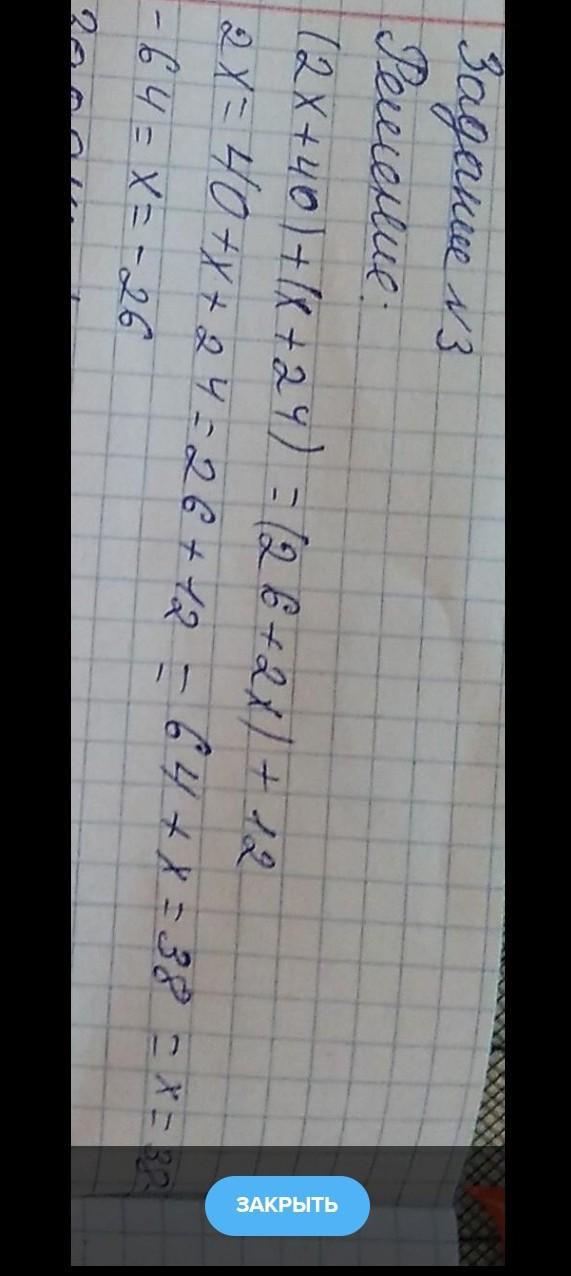 Задание №3
Решение:
(2x+40)+(x+24)=(26+2x)+12
2x=40+x+24=26+12=64+x=38=x=38
-64=x=-26
ЗАКРЫТЬ